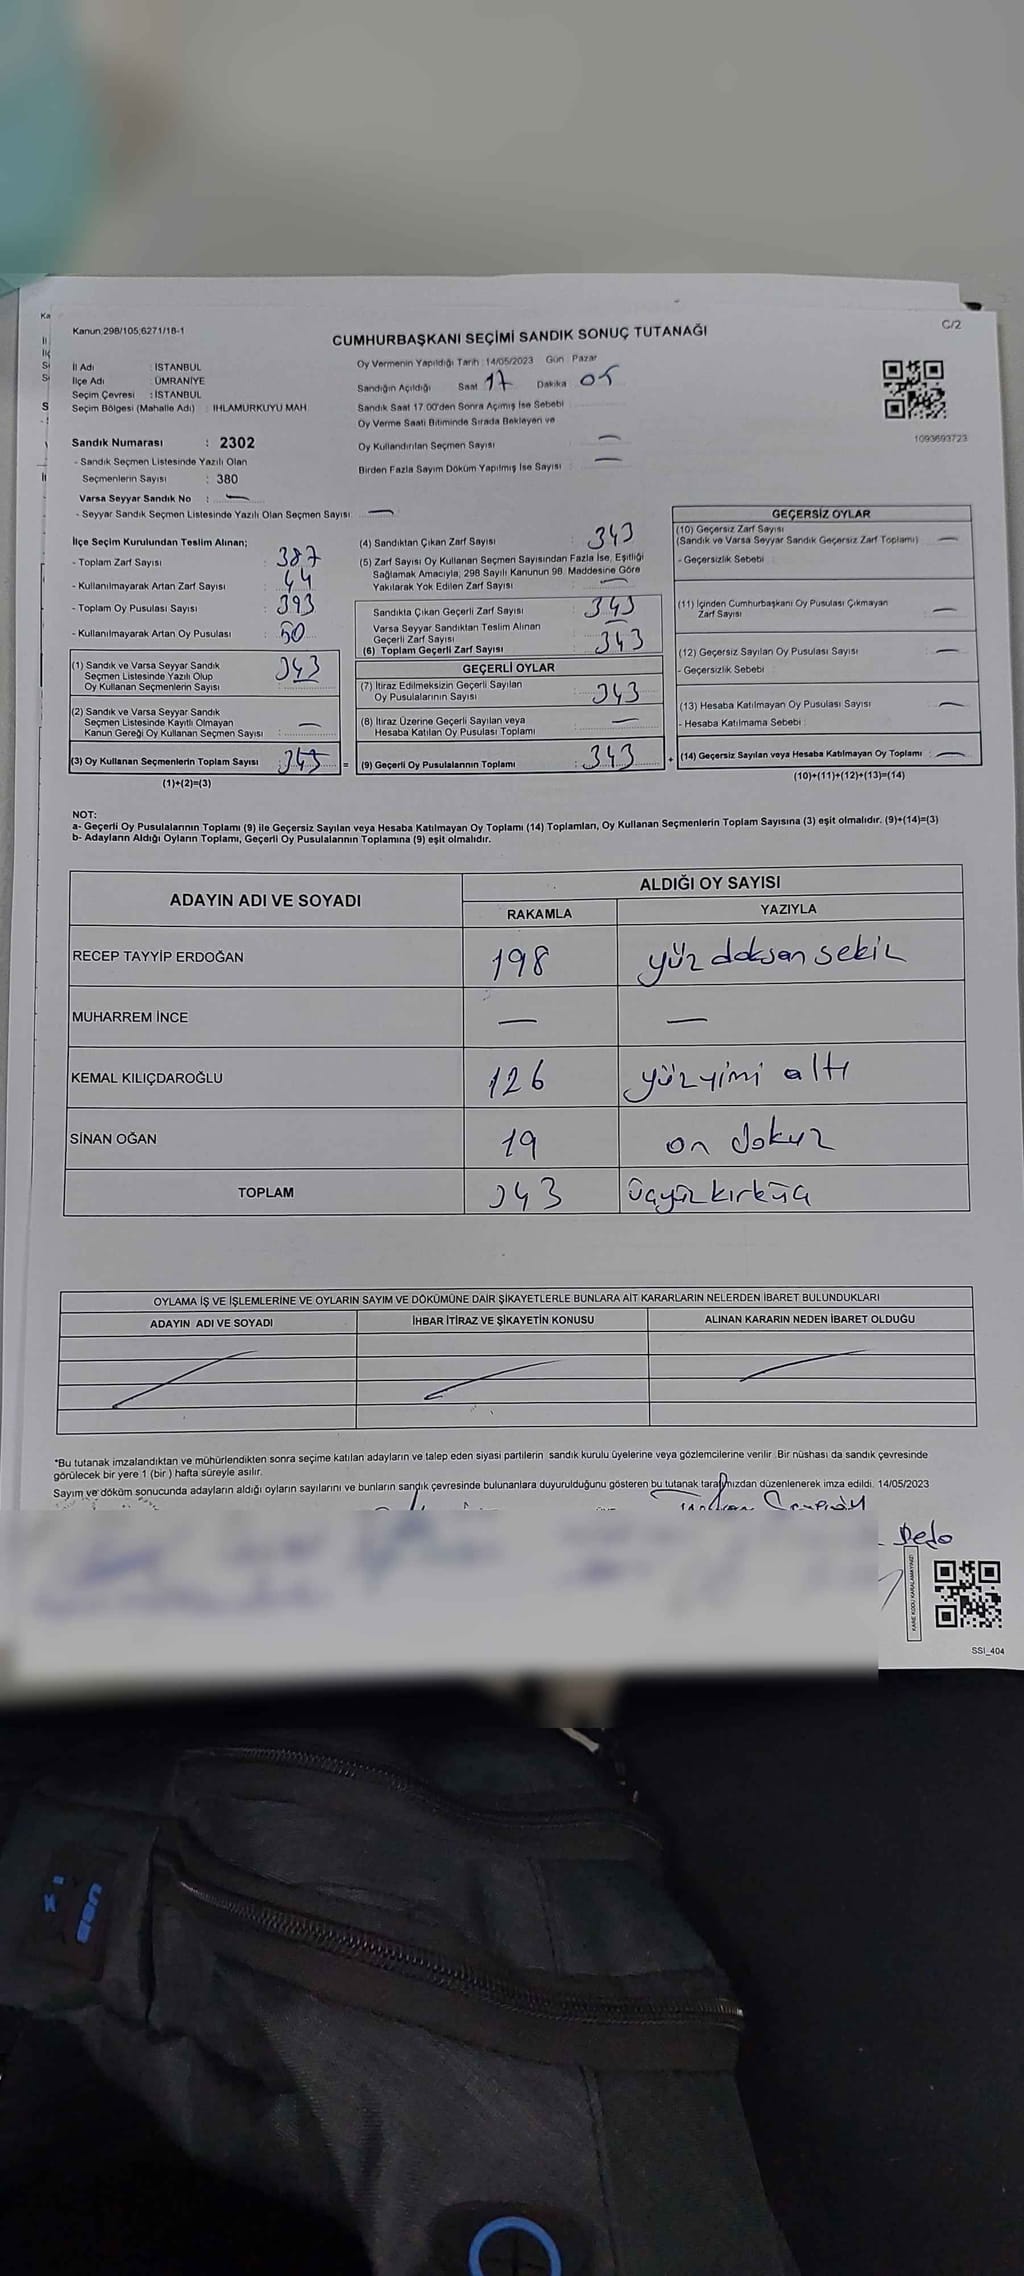 Kanun:298/105;6271/18-1
C/2
CUMHURBAŞKANI SEÇİMİ SANDIK SONUÇ TUTANAĞI
İl Adı : İSTANBUL
İlçe Adı : ÜMRANİYE
Seçim Çevresi : İSTANBUL
Seçim Bölgesi (Mahalle Adı) : IHLAMURKUYU MAH
Sandık Numarası : 2302
- Sandık Seçmen Listesinde Yazılı Olan
Seçmenlerin Sayısı : 380
Varsa Seyyar Sandık No : —
- Seyyar Sandık Seçmen Listesinde Yazılı Olan Seçmen Sayısı : —
Oy Vermenin Yapıldığı Tarih : 14/05/2023 Gün : Pazar
Sandığın Açıldığı Saat 17 Dakika 05
Sandık Saat 17.00'den Sonra Açımış İse Sebebi
Oy Verme Saati Bitiminde Sırada Bekleyen ve
Oy Kullandırılan Seçmen Sayısı : —
Birden Fazla Sayım Döküm Yapılmış İse Sayısı : —
1093693723
İlçe Seçim Kurulundan Teslim Alınan;
- Toplam Zarf Sayısı : 387
- Kullanılmayarak Artan Zarf Sayısı : 44
- Toplam Oy Pusulası Sayısı : 393
- Kullanılmayarak Artan Oy Pusulası : 50
(1) Sandık ve Varsa Seyyar Sandık
Seçmen Listesinde Yazılı Olup
Oy Kullanan Seçmenlerin Sayısı : 343
(2) Sandık ve Varsa Seyyar Sandık
Seçmen Listesinde Kayıtlı Olmayan
Kanun Gereği Oy Kullanan Seçmen Sayısı : —
(3) Oy Kullanan Seçmenlerin Toplam Sayısı : 343 =
(1)+(2)=(3)
(4) Sandıktan Çıkan Zarf Sayısı : 343
(5) Zarf Sayısı Oy Kullanan Seçmen Sayısından Fazla İse, Eşitliği
Sağlamak Amacıyla, 298 Sayılı Kanunun 98. Maddesine Göre
Yakılarak Yok Edilen Zarf Sayısı : —
Sandıkta Çıkan Geçerli Zarf Sayısı : 343
Varsa Seyyar Sandıktan Teslim Alınan
Geçerli Zarf Sayısı : —
(6) Toplam Geçerli Zarf Sayısı : 343
GEÇERLİ OYLAR
(7) İtiraz Edilmeksizin Geçerli Sayılan
Oy Pusulalarının Sayısı : 343
(8) İtiraz Üzerine Geçerli Sayılan veya
Hesaba Katılan Oy Pusulası Toplamı : —
(9) Geçerli Oy Pusulalarının Toplamı : 343 +
GEÇERSİZ OYLAR
(10) Geçersiz Zarf Sayısı
(Sandık ve Varsa Seyyar Sandık Geçersiz Zarf Toplamı) : —
- Geçersizlik Sebebi :
(11) İçinden Cumhurbaşkanı Oy Pusulası Çıkmayan
Zarf Sayısı : —
(12) Geçersiz Sayılan Oy Pusulası Sayısı : —
- Geçersizlik Sebebi :
(13) Hesaba Katılmayan Oy Pusulası Sayısı : —
- Hesaba Katılmama Sebebi :
(14) Geçersiz Sayılan veya Hesaba Katılmayan Oy Toplamı : —
(10)+(11)+(12)+(13)=(14)
NOT:
a- Geçerli Oy Pusulalarının Toplamı (9) ile Geçersiz Sayılan veya Hesaba Katılmayan Oy Toplamı (14) Toplamları, Oy Kullanan Seçmenlerin Toplam Sayısına (3) eşit olmalıdır. (9)+(14)=(3)
b- Adayların Aldığı Oyların Toplamı, Geçerli Oy Pusulalarının Toplamına (9) eşit olmalıdır.
ADAYIN ADI VE SOYADI
ALDIĞI OY SAYISI
RAKAMLA YAZIYLA
RECEP TAYYİP ERDOĞAN 198 yüz doksan sekiz
MUHARREM İNCE — —
KEMAL KILIÇDAROĞLU 126 yüzyimi altı
SİNAN OĞAN 19 on dokuz
TOPLAM 343 üçyüzkırküç
OYLAMA İŞ VE İŞLEMLERİNE VE OYLARIN SAYIM VE DÖKÜMÜNE DAİR ŞİKAYETLERLE BUNLARA AİT KARARLARIN NELERDEN İBARET BULUNDUKLARI
ADAYIN ADI VE SOYADI İHBAR İTİRAZ VE ŞİKAYETİN KONUSU ALINAN KARARIN NEDEN İBARET OLDUĞU
*Bu tutanak imzalandıktan ve mühürlendikten sonra seçime katılan adayların ve talep eden siyasi partilerin sandık kurulu üyelerine veya gözlemcilerine verilir. Bir nüshası da sandık çevresinde
görülecek bir yere 1 (bir) hafta süreyle asılır.
Sayım ve döküm sonucunda adayların aldığı oyların sayılarını ve bunların sandık çevresinde bulunanlara duyurulduğunu gösteren bu tutanak tarafımızdan düzenlenerek imza edildi. 14/05/2023
KARE KODU KARALAMAYINIZ!
SSI_404
USB